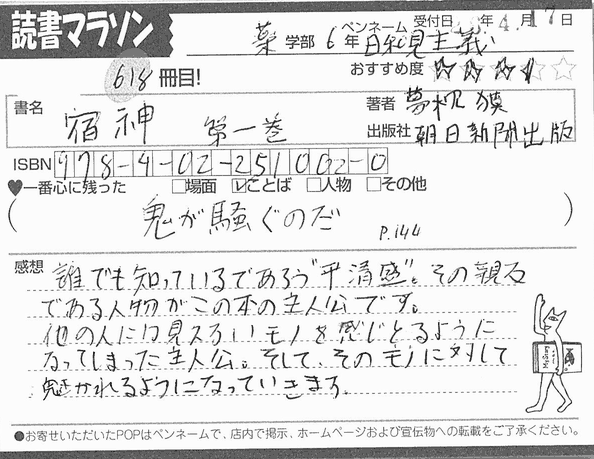 読書マラソン
薬 学部 6年 ペンネーム 日和見主義 受付日 4月17日
618冊目!
おすすめ度 ☆☆☆☆☆
書名 宿神 第一巻
著者 夢枕獏
出版社 朝日新聞出版
ISBN 978-4-02-251002-0
♥一番心に残った □場面 ☑ことば □人物 □その他
(鬼が騒ぐのだ P.144)
感想
誰でも知っているであろう"平清盛"。その親友
である人物がこの本の主人公です。
他の人には見えないモノを感じとるように
なってしまった主人公。そして、そのモノに対して
魅かれるようになっていきます。
●お寄せいただいたPOPはペンネームで、店内で掲示、ホームページおよび宣伝物への転載をご了承ください。